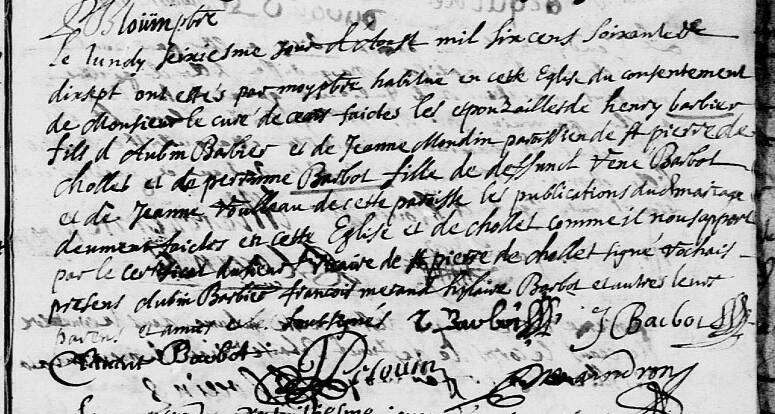 Bloüin pbre
Le lundy seiziesme jour d'Aoust mil six cens soixante et
dix sept ont estés par moy pbre habitué en cette Eglise du consentement
de Monsieur le curé de ceans faictes les epouzailles de henry barbier
fils d'Aubin Barbier et de Jeanne Mondin paroissien de St pierre de
Chollet et de perrinne Barbot fille de deffunct René Barbot
et de Jeanne Voulleau de cette paroisse les publications du mariage
deument faictes en cette Eglise et de chollet comme il nous a apport
par le certificat du sieur vicaire de St pierre de chollet signé
presens Aubin Barbier francois Barbot et autres leurs
parens et amis soussignés Barbot
J Barbot
Barbot